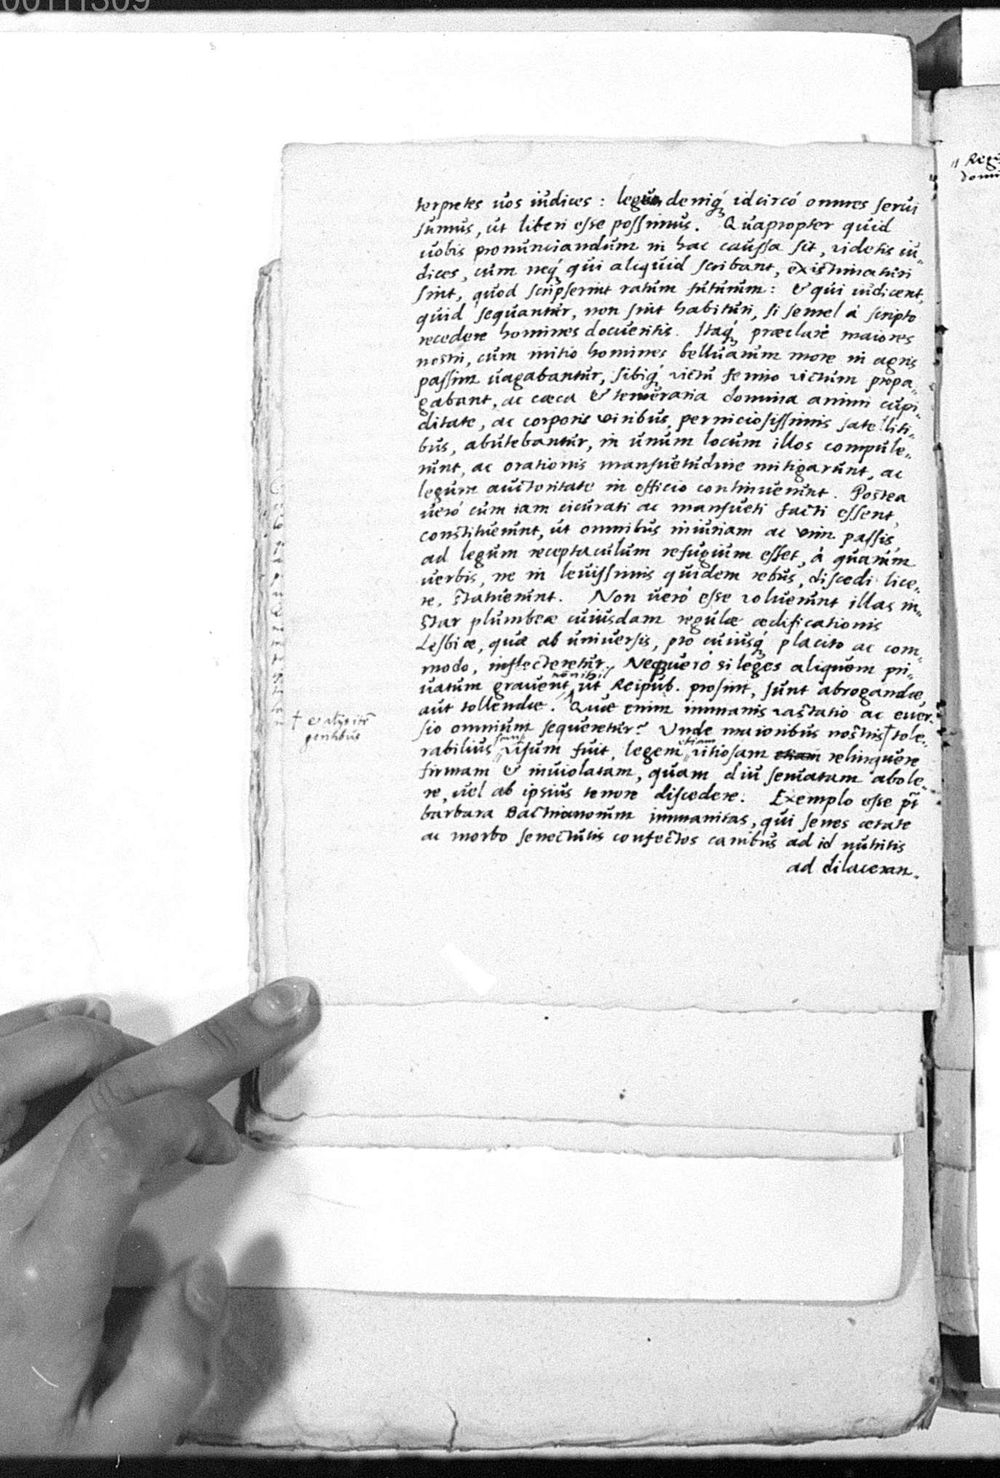 00111309
terpretes uos iudices : legum deniq́ꝫ idcircò omnes serui
sumus, ut liberi esse possimus. Quapropter quid
uobis pronunciandum in hac caussa sit, videtis iu„
dices, cum neq́ꝫ qui aliquid scribant, existimaturi
sint, quod scripserint ratum futurum : & qui iudicent,
quid sequantur, non sint habituri, si semel à scripto
recedere homines docueritis. Itaq́ꝫ præclarè maiores
nostri, cum initio homines belluarum more in agris
passim uagabantur, sibiq́ꝫ victu ferino victum propa„
gabant, ac cæca & temeraria domina animi cupi„
ditate, ac corporis viribus, perniciosissimis satelliti„
bus, abutebantur, in unum locum illos compule„
runt, ac orationis mansuetudine mitigarunt, ac
legum auctoritate in officio continuerunt. Postea
uero cum iam cicurati ac mansueti facti essent,
constituerunt, ut omnibus iniuriam ac vim passis
ad legum receptaculum refugium esset, à quarum
uerbis, ne in leuissimis quidem rebus, discedi lice„
re, statuerunt. Non uerò esse voluerunt illas in„
star plumbeæ cuiusdam regulæ ædificationis
Lesbiæ, quæ ab uniuersis, pro cuiusq́ꝫ placito ac com„
modo, inflecteretur. Neq́ꝫ uerò si leges aliquem pri„
uatum grauent, ut Reipub. prosint, sunt abrogandæ,
aut tollendæ. Quæ enim immanis vastatio ac euer„
sio omnium sequeretur? Unde maioribus nostris † tole„
† &
gentibus
rabilius visum fuit, legem etiam vitiosam etiam relinquere
firmam & inuiolatam, quam diu seruatam abole„
re, uel ab ipsius tenore discedere. Exemplo esse pt̃
barbara Bactrianorum immanitas, qui senes ætate
ac morbo senectutis confectos canibus ad id nutritis
ad dilaceran„
" Regi
domi